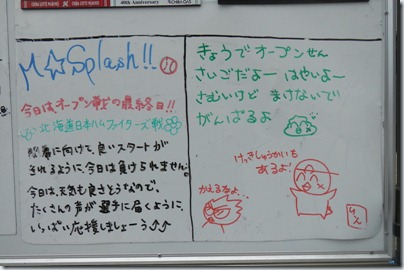 M☆Splash!!
今日はオープン戦の最終日!!
北海道日本ハムファイターズ戦
開幕に向けて、良いスタートが
きれるように、今日は負けられません。
今日は、天気も良さそうなので、
たくさんの声が選手に届くように、
いっぱい応援しましょう↑↑
きょうでオープンせん
さいごだよー はやいよー
さむいけど まけないで
がんばるよ
けっきしゅうかいも
あるよ!
かえるよ